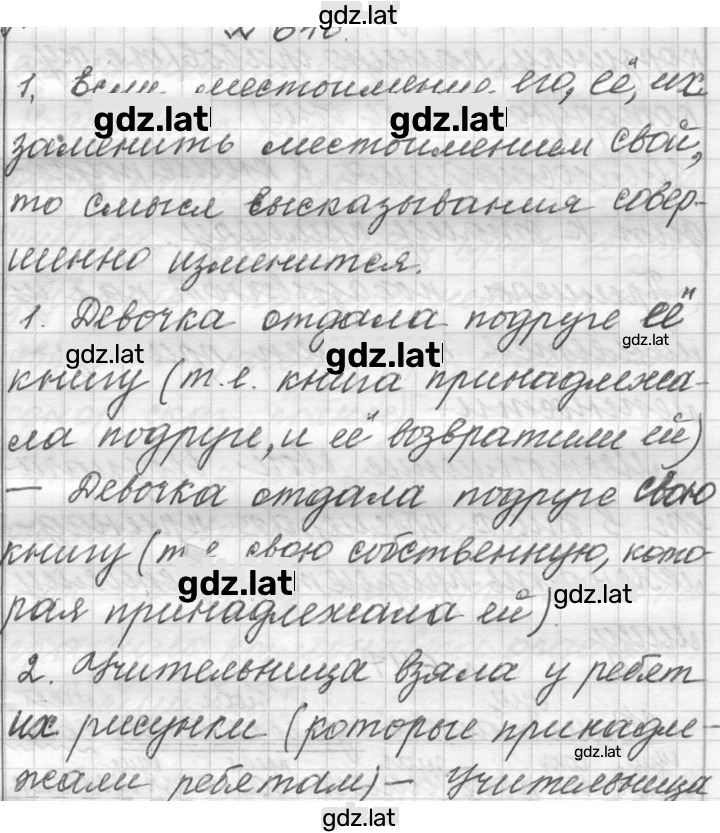 gdz.lat
№
1. Если местоимение его, её, их
gdz.lat gdz.lat
заменить местоимением свой,
то смысл высказывания совер-
шенно изменится.
1. Девочка отдала подруге её
gdz.lat gdz.lat gdz.lat
книгу (т.е. книга принадлежа-
ла подруге, и её возвратили ей)
— Девочка отдала подруге свою
книгу (т.е. свою собственную, кото
gdz.lat gdz.lat
рая принадлежала ей)
2. Учительница взяла у ребят
их рисунки (которые принадле-
gdz.lat
жали ребятам) — Учительница
gdz.lat